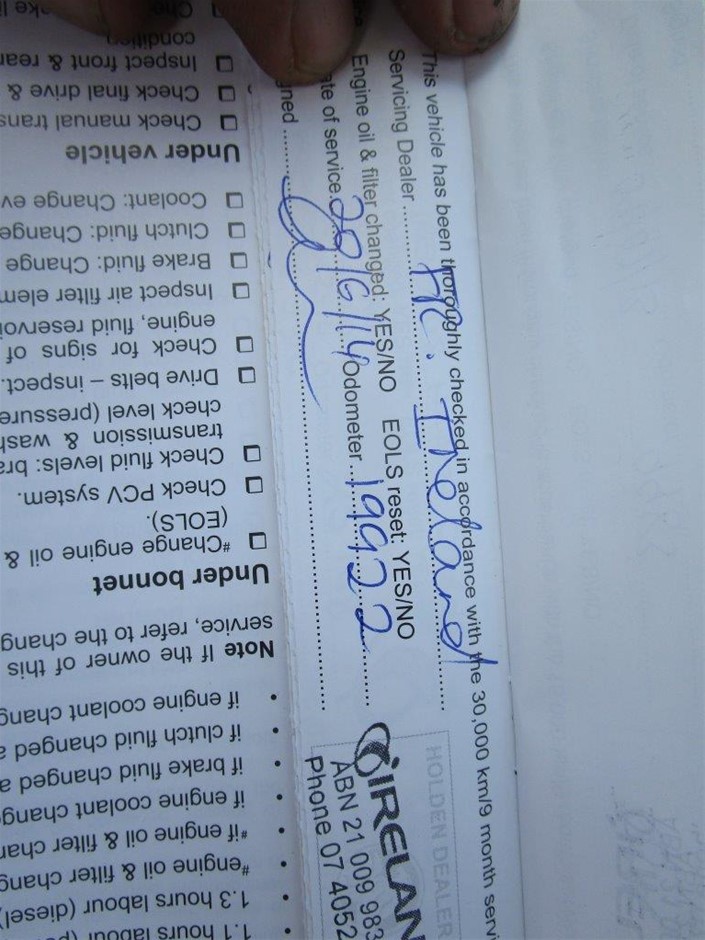 This vehicle has been thoroughly checked in accordance with the 30,000 km/9 month servi
Servicing Dealer .......... Ireland
Engine oil & filter changed: YES/NO EOLS reset: YES/NO
ate of service. 20/6/14 Odometer 19922
ned
HOLDEN DEALER
IRELAN
ABN 21 009 983
Phone 07 4052
1.1 hours labour
1.3 hours labour (diesel)
#engine oil & filter chang
#if engine oil & filter chan
if engine coolant change
if brake fluid changed a
if clutch fluid changed a
if engine coolant chang
Note If the owner of this
service, refer to the chang
Under bonnet
#Change engine oil &
(EOLS).
Check PCV system.
Check fluid levels: bra
transmission & wash
check level (pressure
Drive belts – inspect.
Check for signs of
engine, fluid reservoi
Inspect air filter elem
Brake fluid: Change
Clutch fluid: Change
Coolant: Change eve
Under vehicle
Check manual trans
Check final drive &
Inspect front & rear
condition